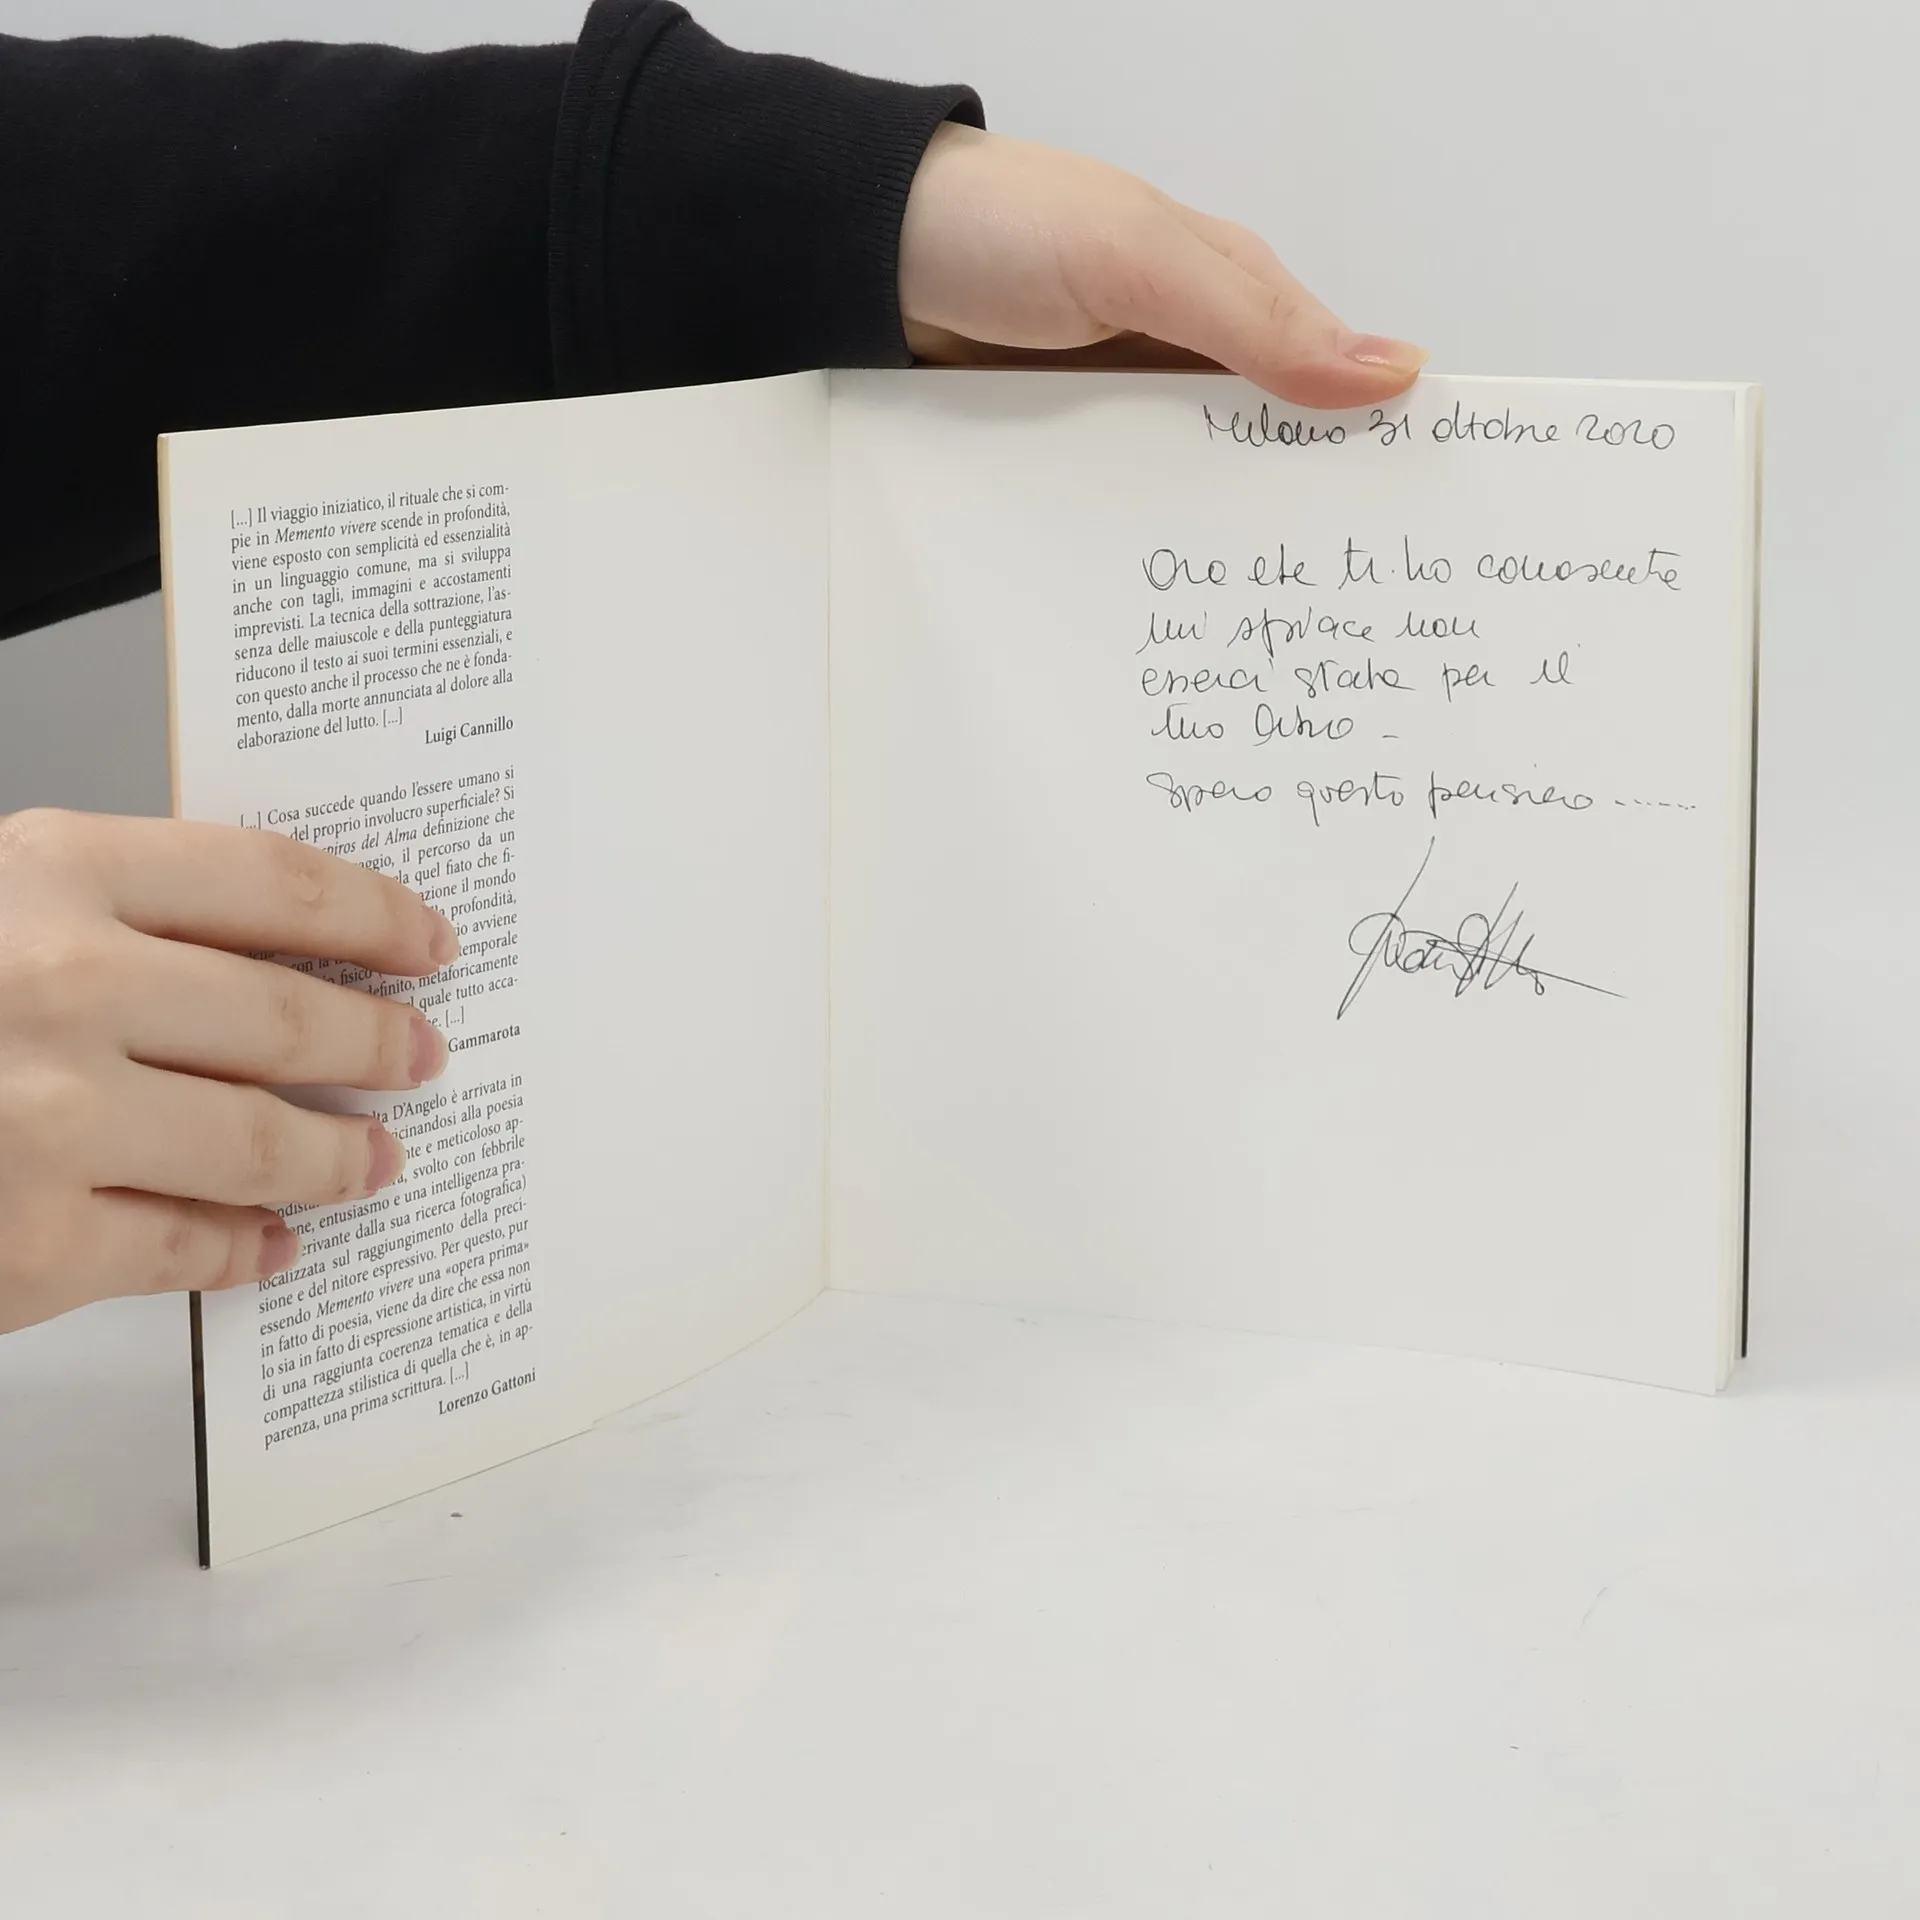 [...] Il viaggio iniziatico, il rituale che si com-
pie in Memento vivere scende in profondità,
viene esposto con semplicità ed essenzialità
in un linguaggio comune, ma si sviluppa
anche con tagli, immagini e accostamenti
imprevisti. La tecnica della sottrazione, l'as-
senza delle maiuscole e della punteggiatura
riducono il testo ai suoi termini essenziali, e
con questo anche il processo che ne è fonda-
mento, dalla morte annunciata al dolore alla
elaborazione del lutto. [...]
Luigi Cannillo
[...] Cosa succede quando l'essere umano si
del proprio involucro superficiale? Si
del Alma definizione che
il percorso da un
quel fiato che fi-
il mondo
profondità,
avviene
temporale
fisico metaforicamente
quale tutto acca-
[...]
Gammarota
D'Angelo è arrivata in
alla poesia
e meticoloso ap-
svolto con febbrile
entusiasmo e una intelligenza pra-
dalla sua ricerca fotografica)
focalizzata sul raggiungimento della preci-
sione e del nitore espressivo. Per questo, pur
essendo Memento vivere una «opera prima»
in fatto di poesia, viene da dire che essa non
lo sia in fatto di espressione artistica, in virtù
di una raggiunta coerenza tematica e della
compattezza stilistica di quella che è, in ap-
parenza, una prima scrittura. [...]
Lorenzo Gattoni
Milano 31 ottobre 2020
Ora che ti ho conosciuta
mi spiace non
esserci stata per il
tuo libro -
Spero questo pensiero .......